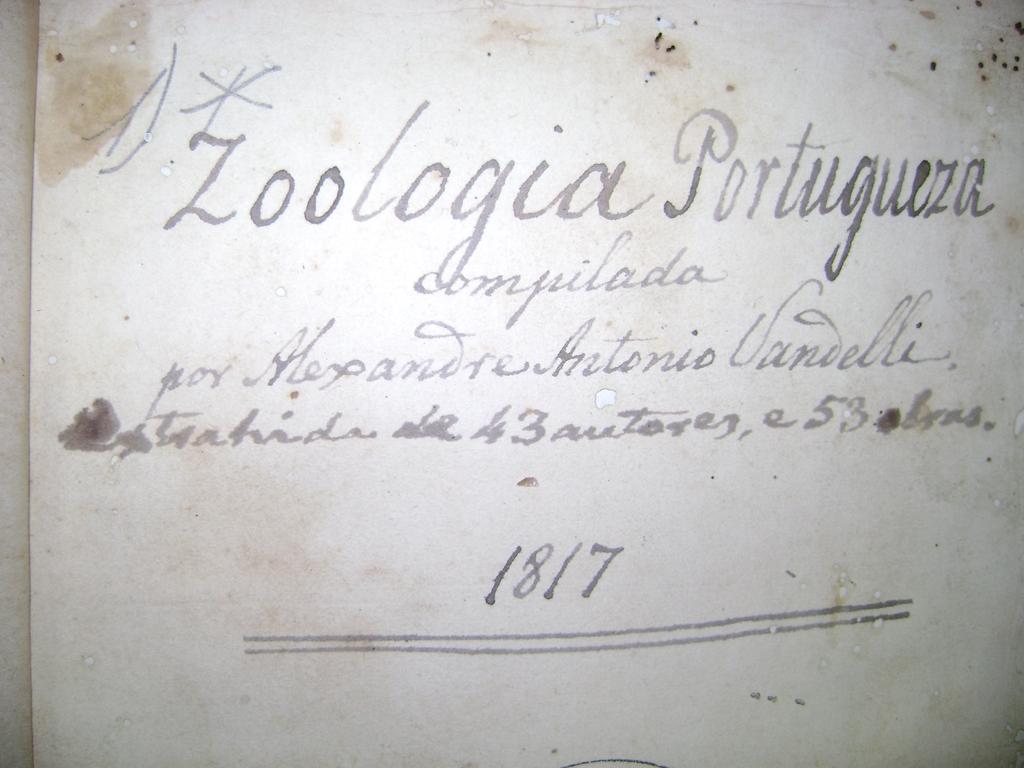 1) *
Zoologia Portugueza
compilada
por Alexandre Antonio Vandelli.
Extrahida de 43 autores, e 53 obras.
1817